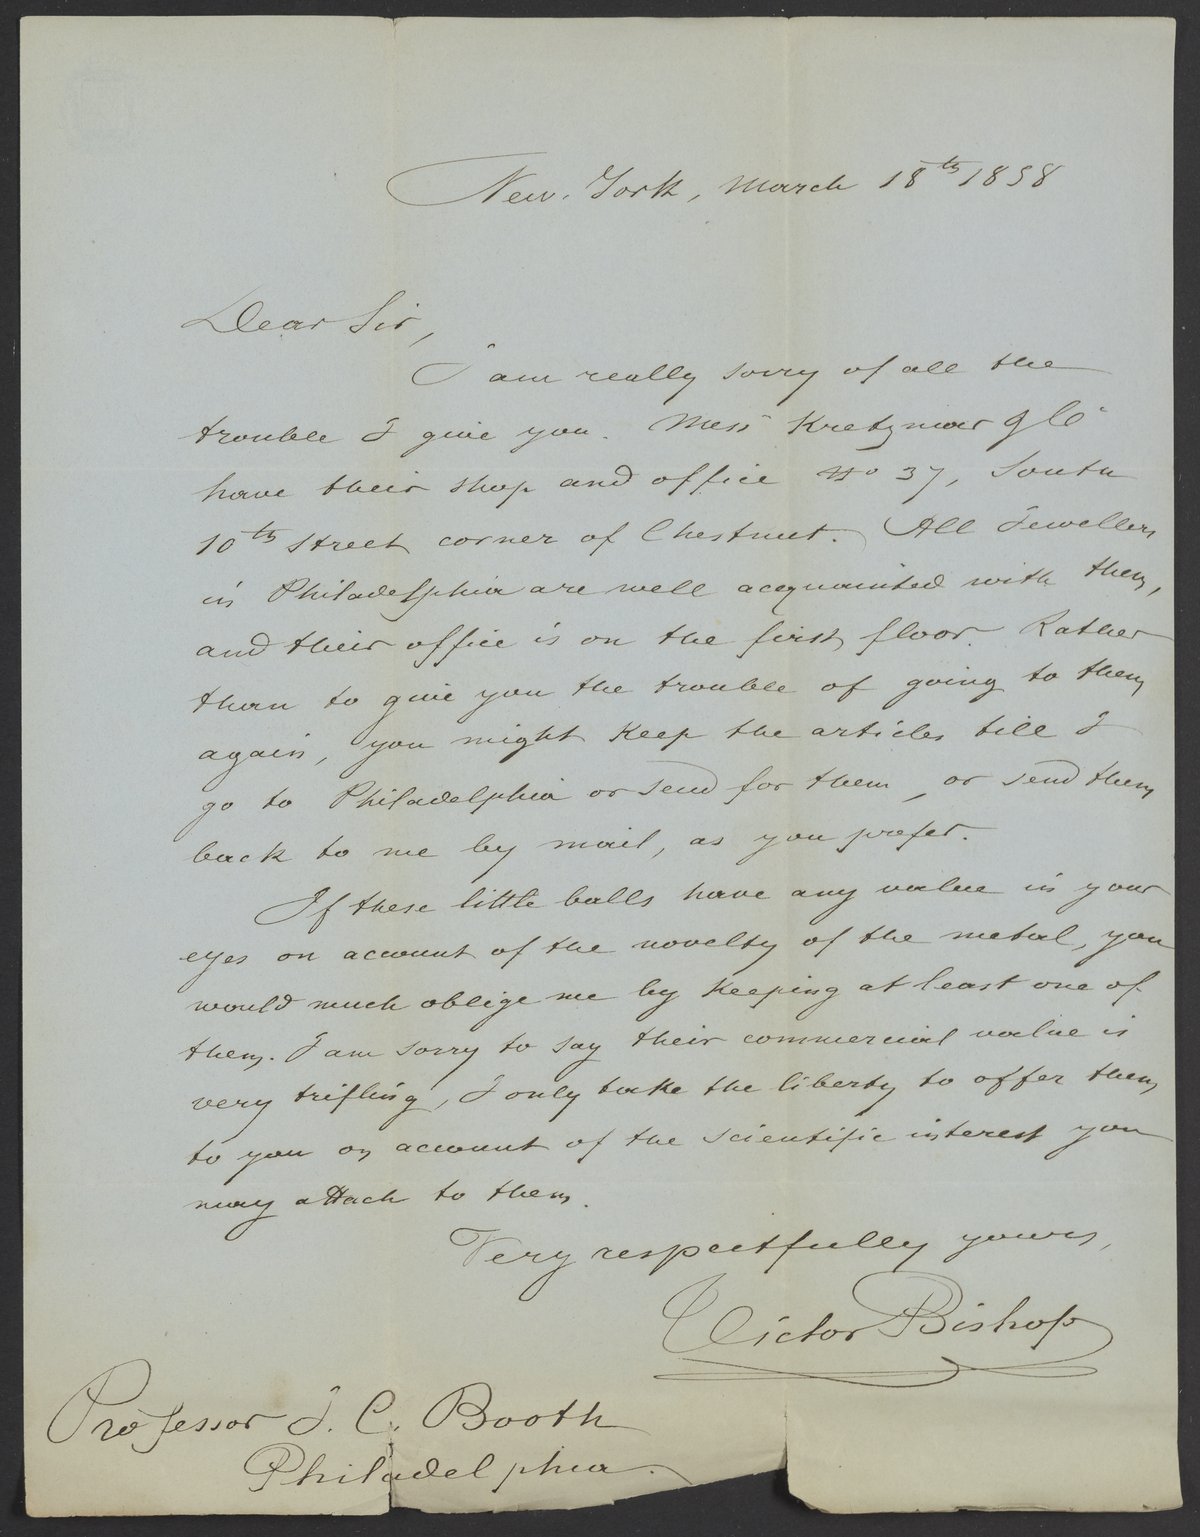 New. York, March 18th 1858
Dear Sir,
I am really sorry of all the
trouble I give you. Mess Kretzmar & Co
have their shop and office No 37, South
10th street corner of Chestnut. All Jewellers
in Philadelphia are well acquainted with them,
and their office is on the first floor. Rather
than to give you the trouble of going to them
again, you might keep the articles till I
go to Philadelphia or send for them, or send them
back to me by mail, as you prefer.
If these little balls have any value in your
eyes on account of the novelty of the metal, you
would much oblige me by keeping at least one of
them. I am sorry to say their commercial value is
very trifling, I only take the liberty to offer them
to you on account of the scientific interest you
may attach to them.
Very respectfully yours,
Victor Bishop
Professor J. C. Booth
Philadelphia.